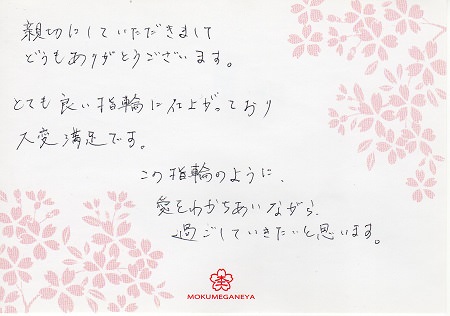 親切にしていただきまして
どうもありがとうございます。
とても良い指輪に仕上がっており
大変満足です。
この指輪のように、
愛をわかちあいながら、
過ごしていきたいと思います。
MOKUMEGANEYA